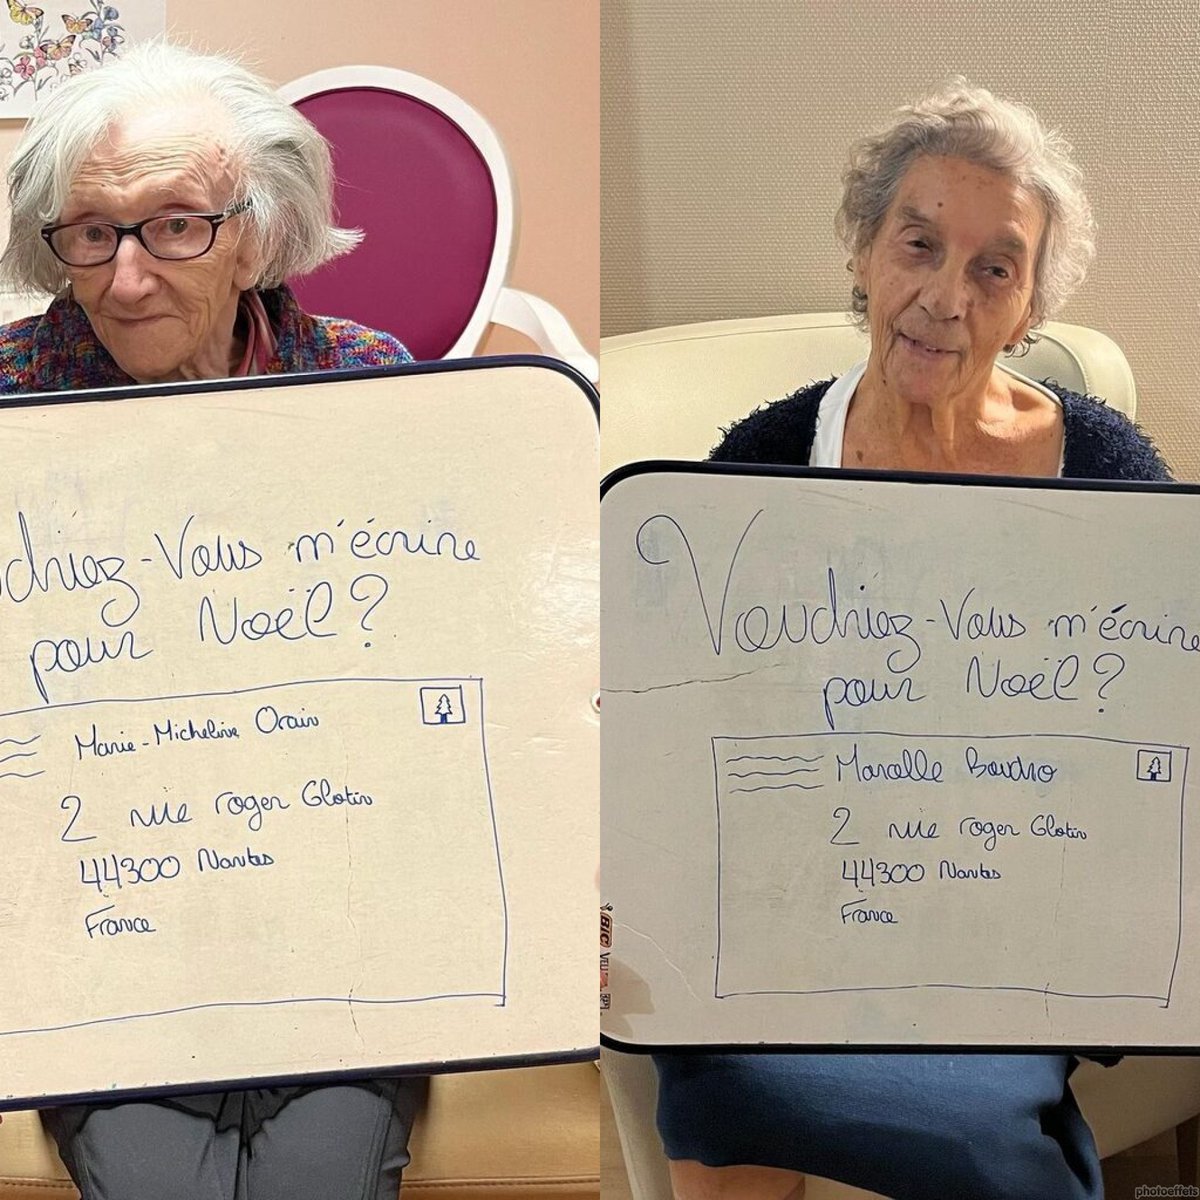 udriez-Vous m'écrire
pour Noël?
Marie-Micheline Orain
2 rue roger Glotin
44300 Nantes
France
Voudriez-Vous m'écrire
pour Noël?
Marcelle Baudro
2 rue roger Glotin
44300 Nantes
France
BIC VELL
photoeffets